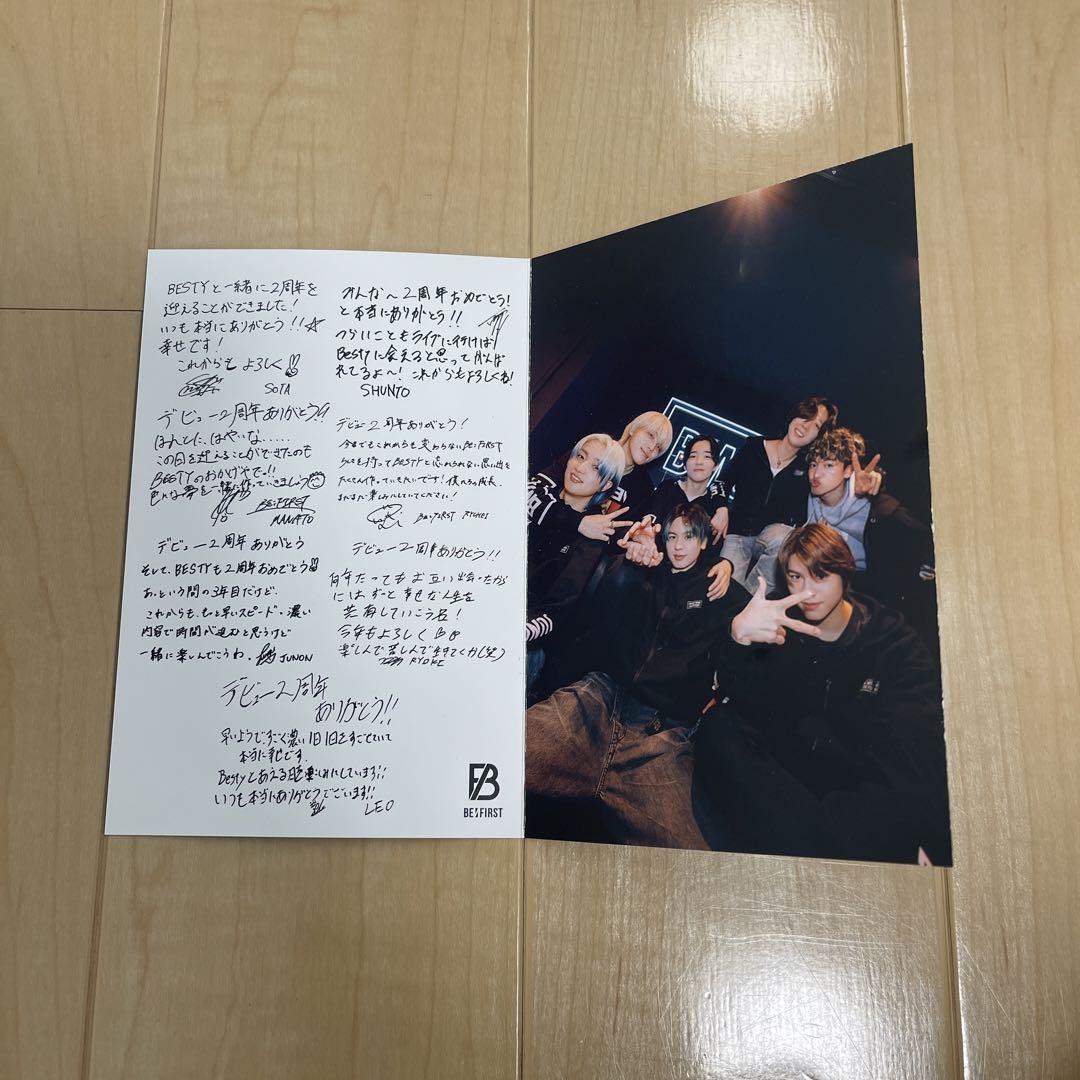 BESTYと一緒に2周年を
迎えることができました!
いつも本当にありがとう!!☆
幸せです!
これからもよろしく
SOTA
みんな〜2周年おめでとう!
と本当にありがとう!!
つらいこともライブに行けば
Bestyに会えると思ってがんば
れてるよ〜!これからもよろしくね!
SHUNTO
デビュー2周年ありがとう!!
ほんとに、はやいな.....
この日を迎えることができたのも
BESTYのおかげやで!!
色んな夢を一緒に作っていきましょう
BE:FIRST
MANATO
デビュー2周年ありがとう!
今まで もこれからも変わらないBE:FIRST
を持ってBESTYと忘れられない思い出を
たくさん作っていきたいです!僕たちの成長、
まだまだ楽しみにしていてください!
BE:FIRST RYUHEI
デビュー2周年ありがとう
そして、BESTYも2周年おめでとう
あっという間の3年目だけど、
これからも、もっと早いスピード、濃い
内容で時間が進むと思うけど
一緒に楽しんでこうね。 JUNON
デビュー2周年ありがとう!!
何年たってもお互い出会ったから
には、ずっと幸せな人生を
共有していこうな!
今年もよろしく
楽しんで苦しんで生きてくか(笑)
RYOKI
デビュー2周年
ありがとう!!
早いようですごく濃い1日1日をすごせていて
本当に幸せです。
Bestyとあえる日を楽しみにしています!!
いつも本当にありがとうございます!!
LEO
BE:FIRST